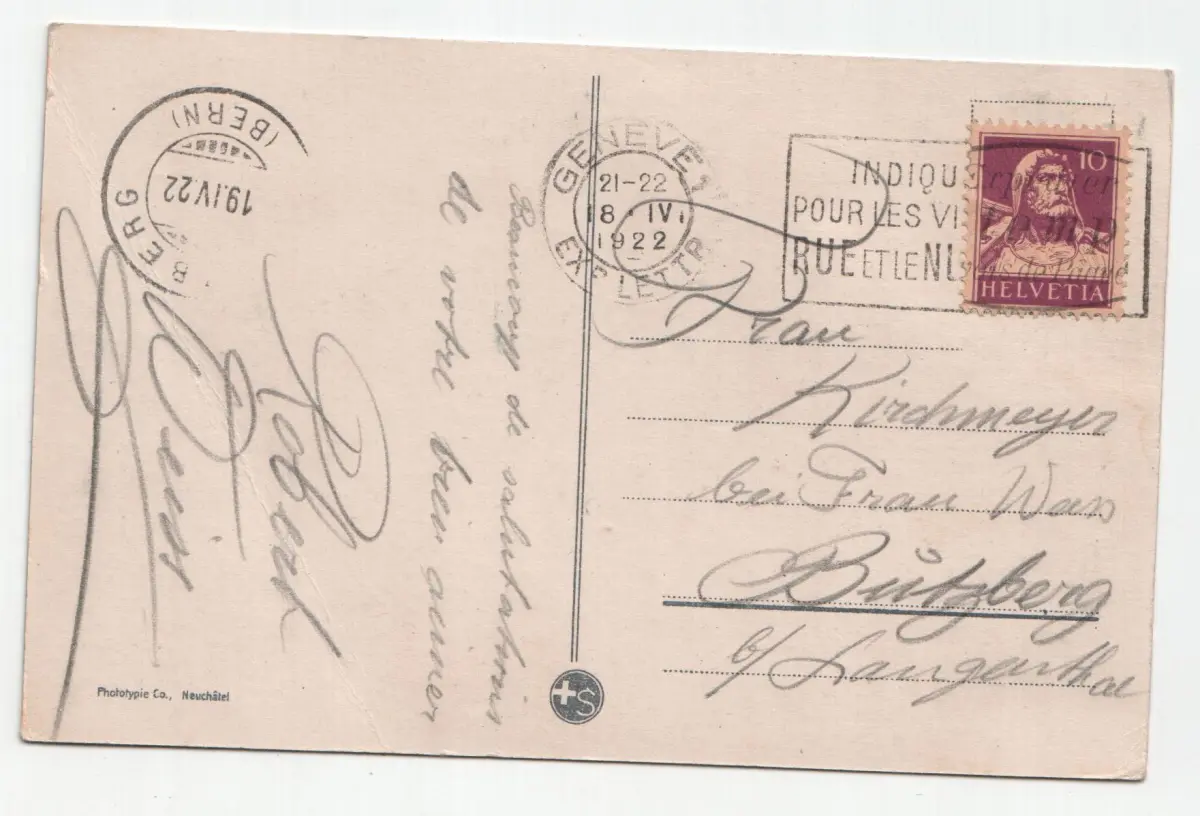 (BERN)
19.IV.22
ERG
8
GENEVE 1
21-22
18·IV
1922
EXP. LETTR
INDIQU
POUR LES VI
RUE ET LE N
10
HELVETIA
Beaucoup de salutations
de votre bien aimer
Robert
Frau
Kirchmeyer
bei Frau
Bützberg
b/ Langenthal
Phototypie Co., Neuchâtel
S